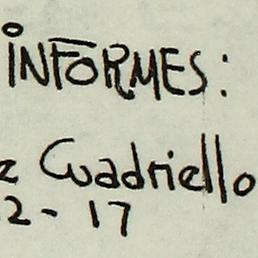 INFORMES:
z Cuadriello
2-17